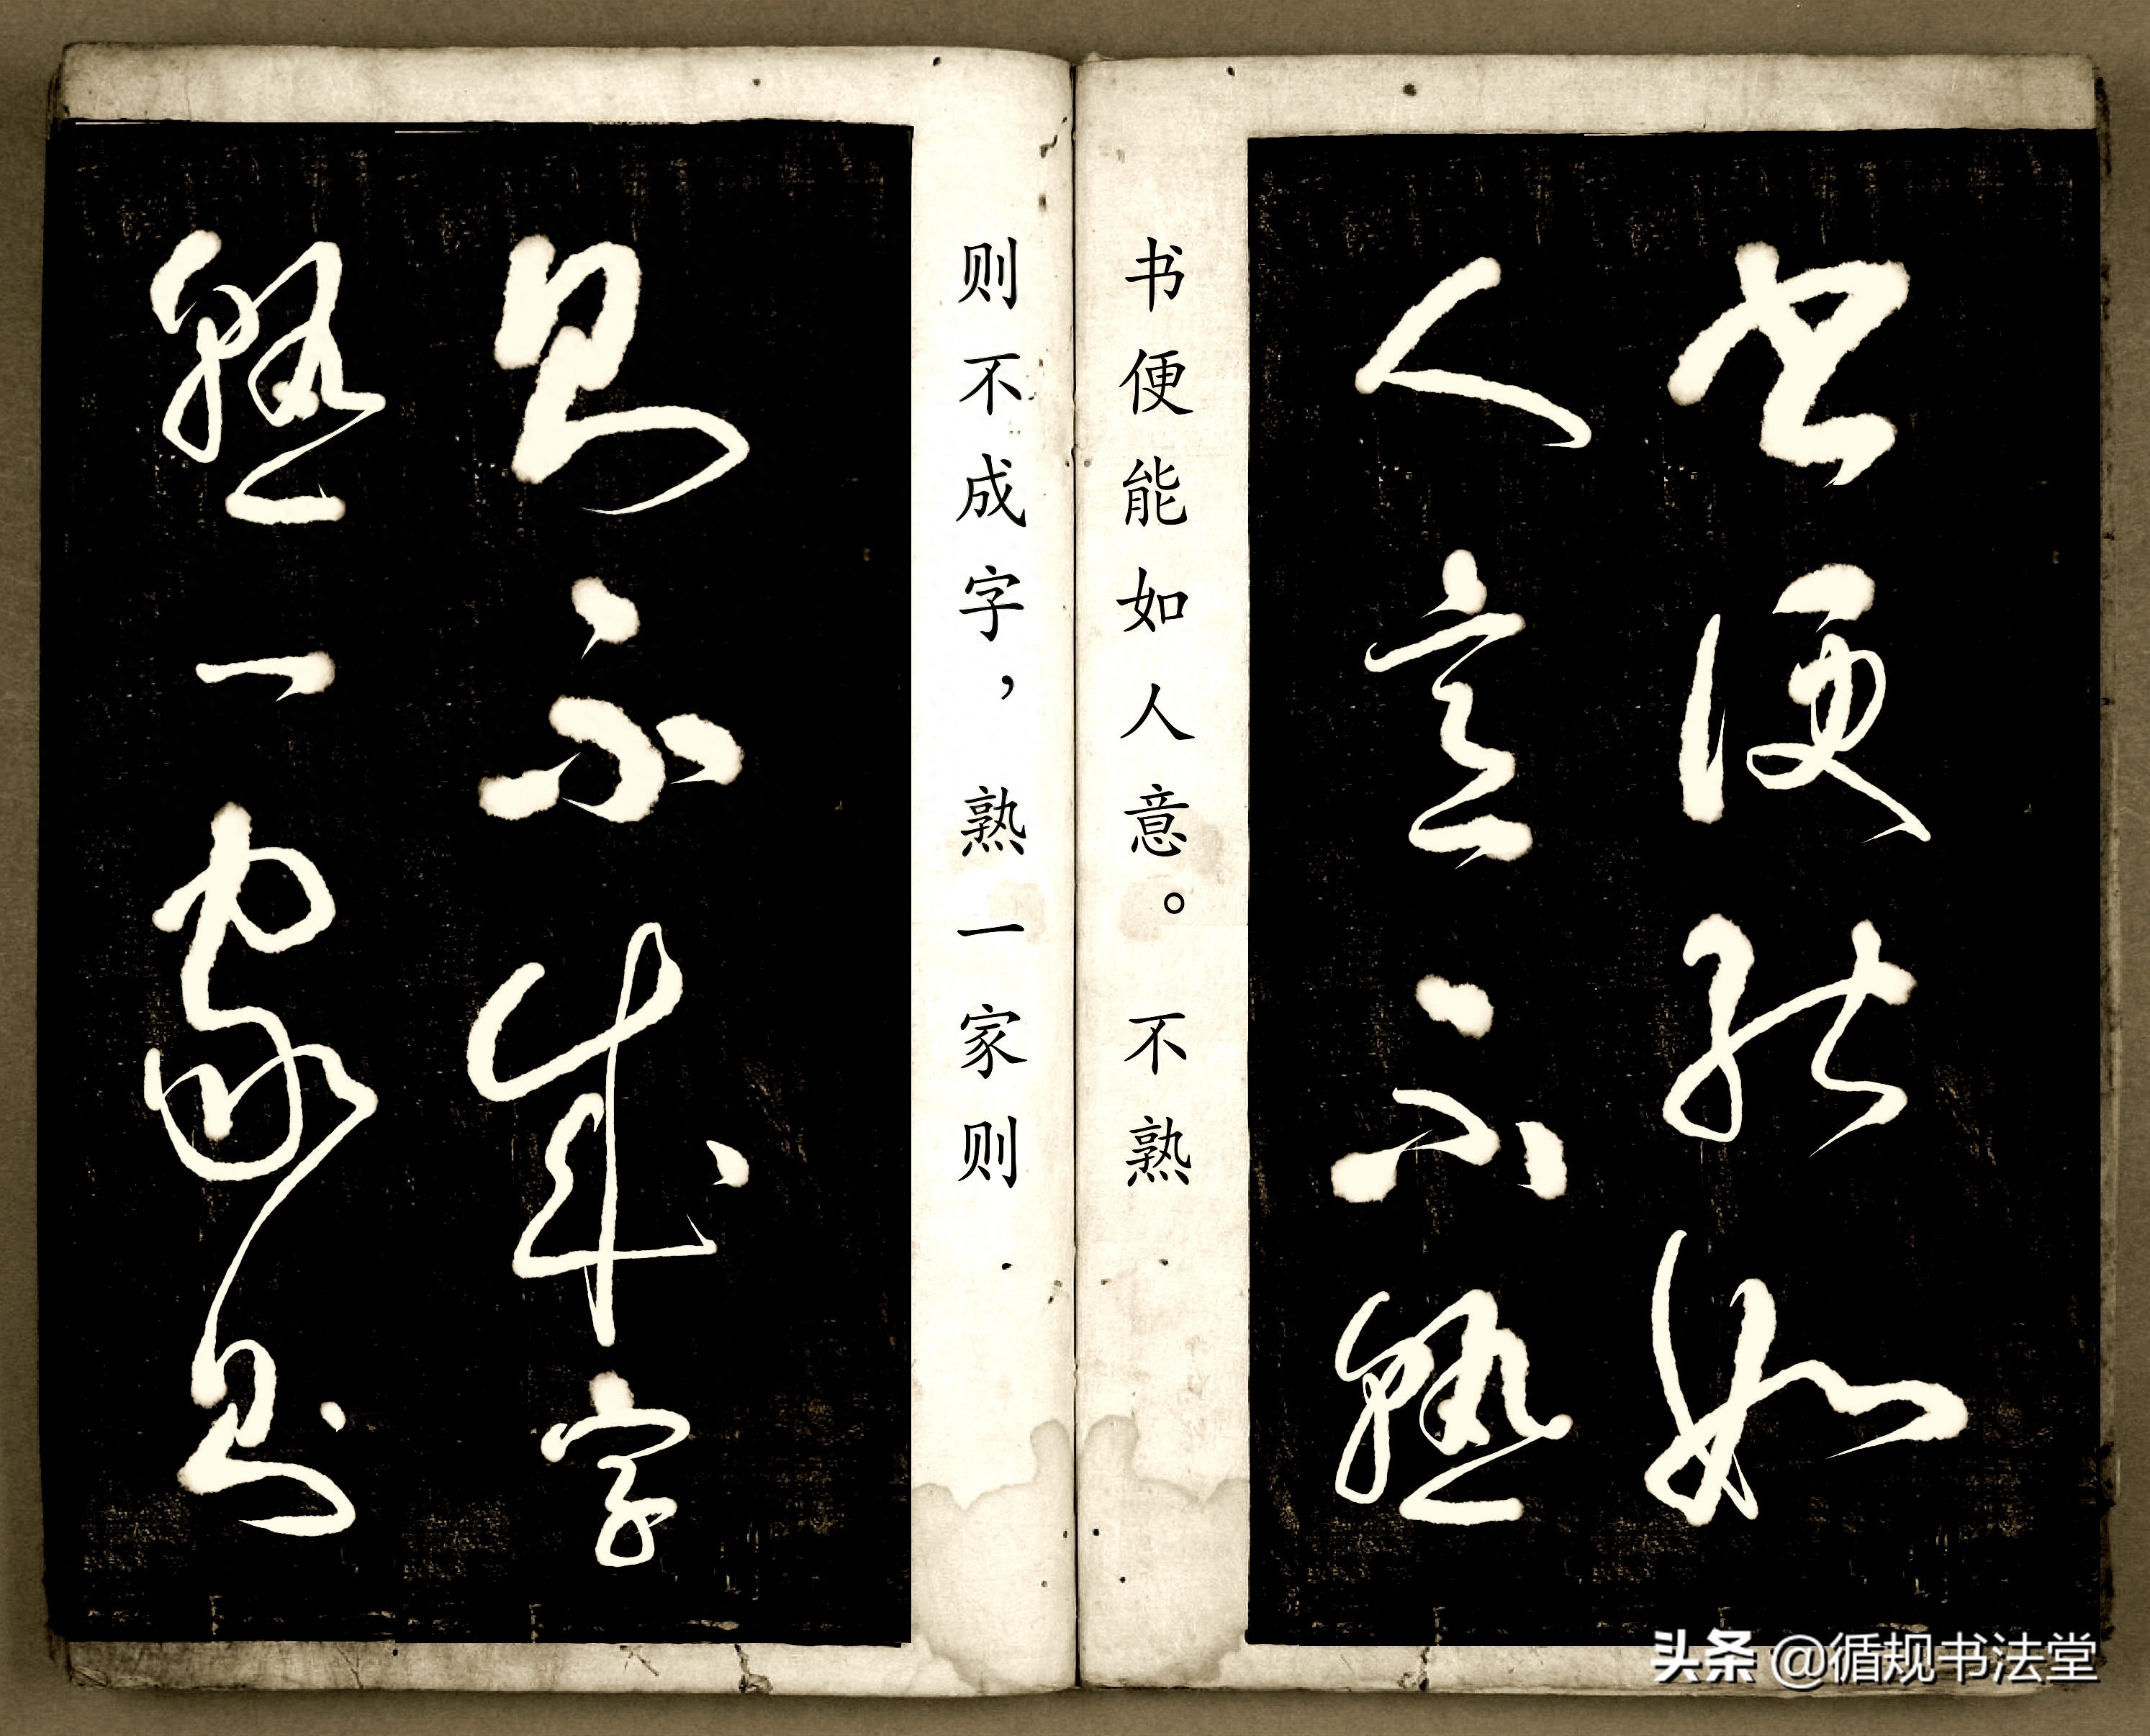 书便能如
人意不熟
书便能如人意。不熟
则不成字，熟一家则
则不成字
熟一家则
头条 @循规书法堂